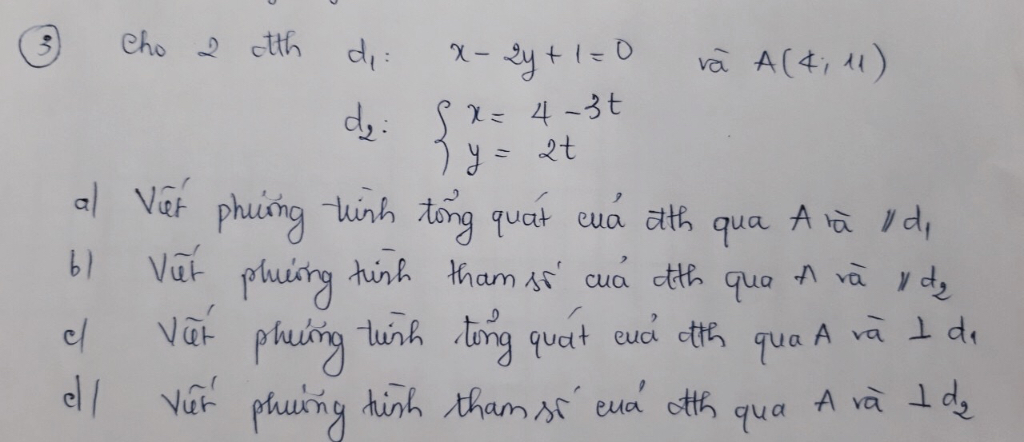 ③ Cho 2 đth d₁: x - 2y + 1 = 0 và A(4; 11)
d₂: { x = 4 - 3t
y = 2t
a) Viết phương trình tổng quát của đth qua A và // d₁
b) Viết phương trình tham số của đth qua A và // d₂
c) Viết phương trình tổng quát của đth qua A và ⊥ d₁
d) Viết phương trình tham số của đth qua A và ⊥ d₂